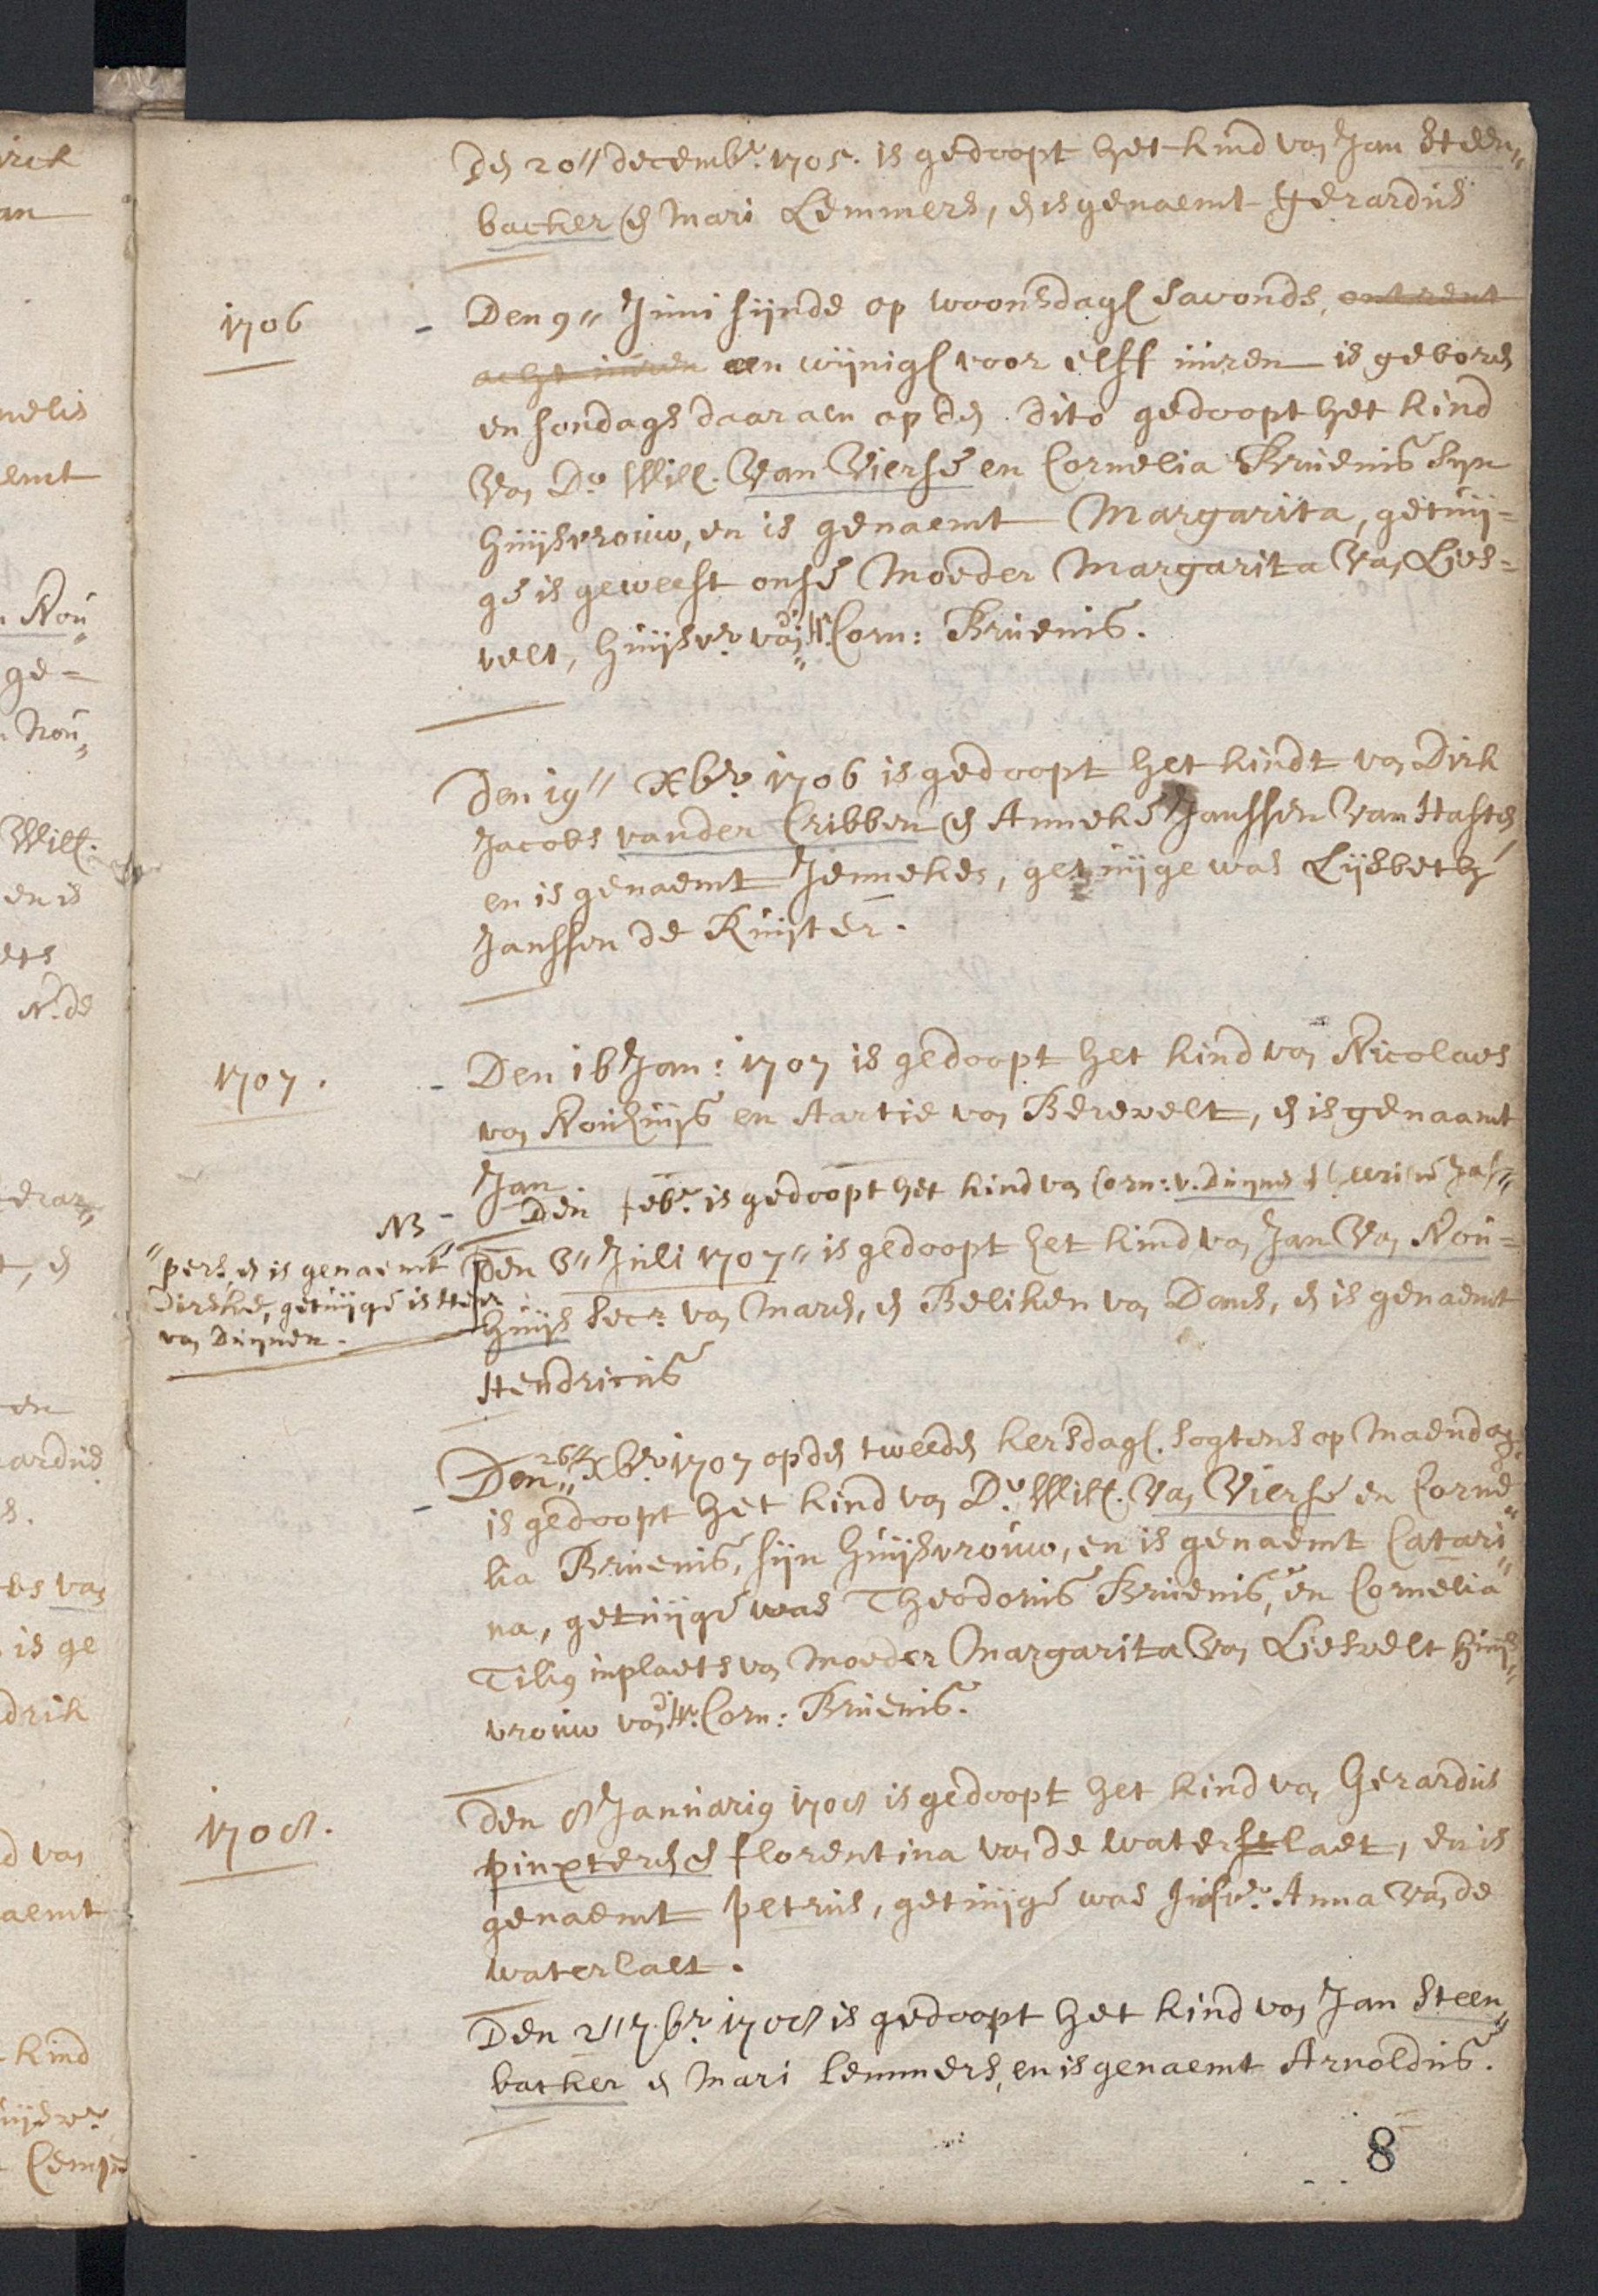 den 20" decemb:r 1705. is gedoopt het kind van Jan Steen"
backer en Mari Lemmers, en is genaemt Gerardus
1706
- Den 9" Juni sijnde op woonsdags savonds, ontrent
acht uuren een wijnigs voor elff uuren is geboren
en sondags daar aen op den dito gedoopt het kind
Van Do Will. Van Vierse en Cornelia Bruenis syn
huijsvrouw, en is genaemt Margarita, getuij=
ge is geweest onse Moeder Margarita Van Lies=
velt, huijsvr. van dHr. Corn: Bruenis.
Den 19" Xbr. 1706 is gedoopt het kindt van Dirk
Jacobs vander Cribben en Anneke Janssen Van Hasten
en is genaemt Jenneken, getuijge was Lijsbeth
Janssen de Ruijter.
1707.
- Den 16 Jan: 1707 is gedoopt het kind van Nicolaes
van Nouhuijs en Aartie van Berevelt, en is genaamt
Jan.
NB - Den febr. is gedoopt het kind van Corn: v. Duijnen en Jas"
"pers, en is genaemt
Dirske, getuijge is
van Duijnen.
Den 3" Juli 1707" is gedoopt het kind van Jan Van Nou=
huijs Secr. van Maren, en Beliken van Dams, en is genaemt
Hendricus
- Den 26" Xbr. 1707 op den tweeden kersdags. sogtens op Maendag
is gedoopt het kind van Do Will. Van Vierse en Corne"
lia Bruenis, sijn huijsvrouw, en is genaemt Catari"
na, getuijge was Theodorus Bruenis, en Cornelia
Tilig inplaets van Moeder Margarita Van Liesvelt huijs"
vrouw van dHr. Corn: Bruenis.
1708.
den 8 Januarij 1708 is gedoopt het kind van Gerardus
pinxteren en florentina van de waterstlaet, en is
genaemt petrus, getuijge was Jufvr. Anna Van de
waterlaet.
Den 2" 7.br. 1708 is gedoopt het kind van Jan Steen"
backer en Mari lemmers, en is genaemt Arnoldus.
8